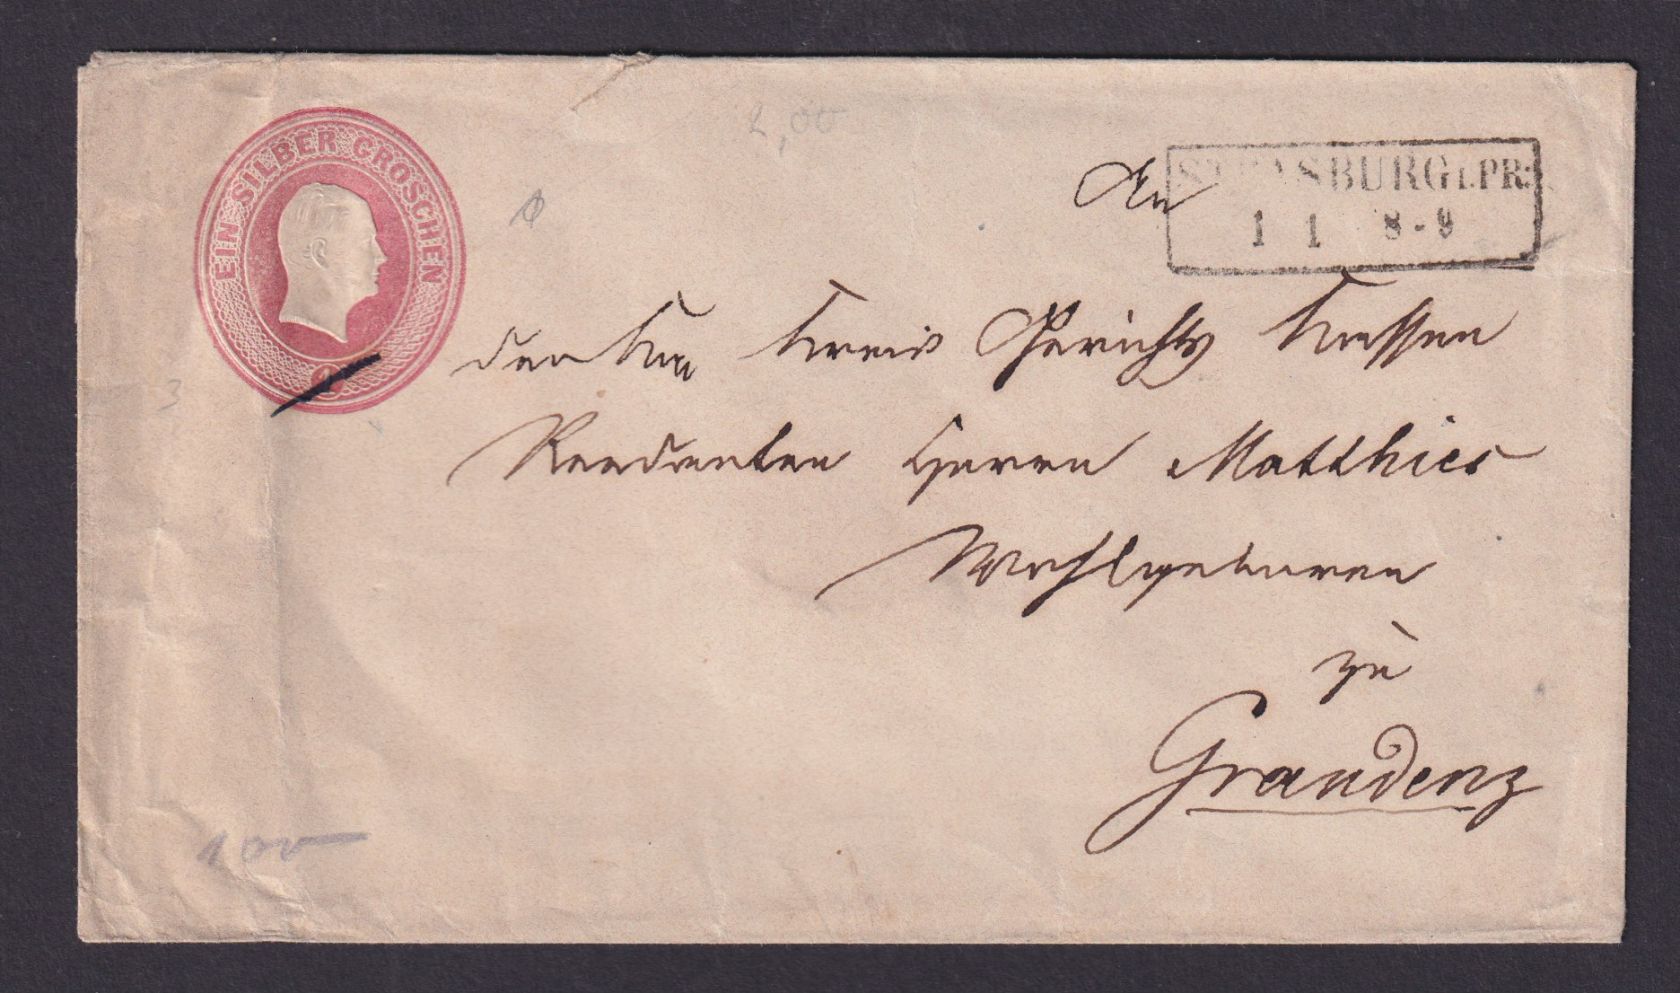 EIN SILBER GROSCHEN
1
2,00
STRASBURG I. PR:
1 1 8-9
An
den Kreis Gerichts Kassen
Rendanten Herrn Matthies
Wohlgeboren
zu
Graudenz
3